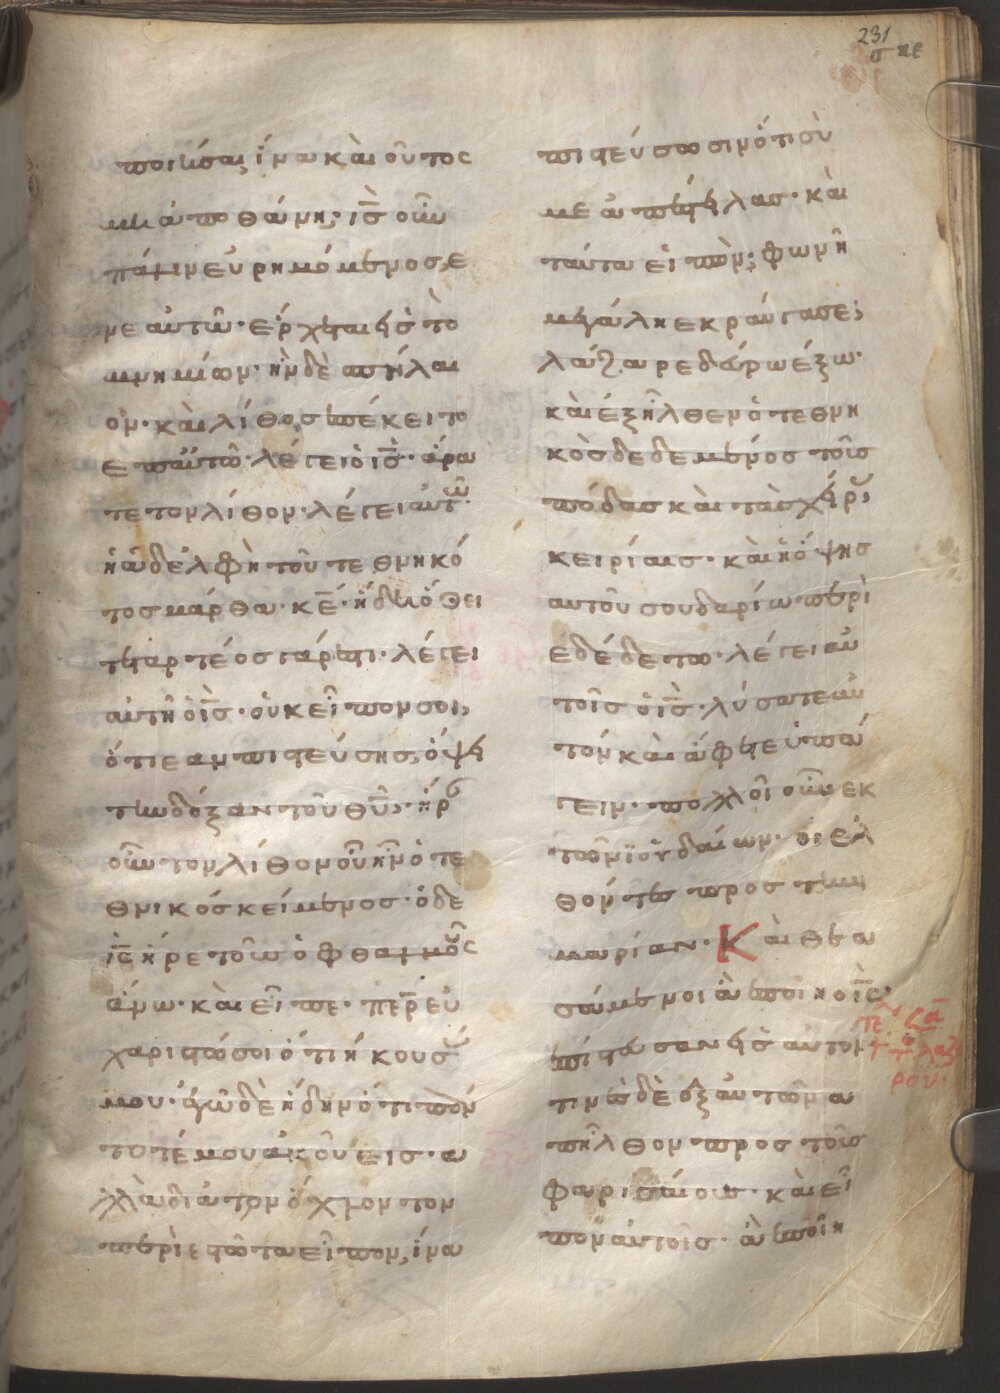 231
σπε
ποιῆσαι ἵνα καὶ οὗτος
μὴ ἀποθάνη· ις̅ οὖν
πάλιν ἐμβριμόμενος ἐ
ν ἑαυτῶ· ἔρχεται εἰς τὸ
μνημεῖον· ἦν δὲ σπήλαι
ον· καὶ λίθος ἐπέκειτο
ἐπ αὐτῶ· λέγει ὁ ις̅· ἄρα
τε τον λίθον· λέγει αὐτῶ
ἡ ἀδελφὴ τοῦ τεθνηκό
τος μάρθα· κε̅· ἤδη ὄζει
τεταρτέος γάρ ἐστι· λέγει
αὐτῆ ὁ ις̅· οὐκ εἶπον σοι,
ὅτι ἐαν πιστεύσης, ὄψει
τὴν δόξαν τοῦ θυ̅· ἦρ
οὖν τον λίθον οὗ ἦν ὁ τε
θνικός κείμενος· ὁ δε
ις̅ ἦρε τοὺς ὀφθαλμοὺς
ἄνω· καὶ εἶπε· περ̅ εὐ
χαριστῶ σοι ὅτι ἤκουσ
μου· ἐγὼ δὲ ἤδην ὅτι πάν
τοτέ μου ἀκούεις· ἀ
λλὰ διὰ τον ὄχλον τον
περιεστῶτα εἶπον, ἵνα
πιστεύσωσιν ὅτι σὺ
με ἀπέστειλας· καὶ
ταῦτα εἰπὼν; φωνῆ
μεγάλη ἐκραύγασε;
λάζαρε δεύρω ἔξω·
καὶ ἐξῆλθεν ὁ τεθνη
κὸς δεδεμένος τοὺς
πόδας καὶ τὰς χεῖρ
κειρίαις· καὶ ἡ ὄψης
αυτοῦ σουδαρίω περὶ
εδέδετο· λέγει αὐ
τοῖς ὁ ις̅· λύσατε αὐ
τόν καὶ ἄφετε ὑπά
γειν· πολλοὶ οὖν ἐκ
τῶν ϊουδαίων· οἱ ἐλ
θόντες προς τὴν
μαρίαν· Καὶ θεα
σάμενοι ἃ ἐποίησεν ὁ ις̅·
ἐπίστευσαν εἰς αὐτον
τινὲς δὲ ἐξ αὐτῶν ἀ
πῆλθον προς τοὺς
φαρισαίους· καὶ εἶ
πον αὐτοῖς· ἃ ἐποίη